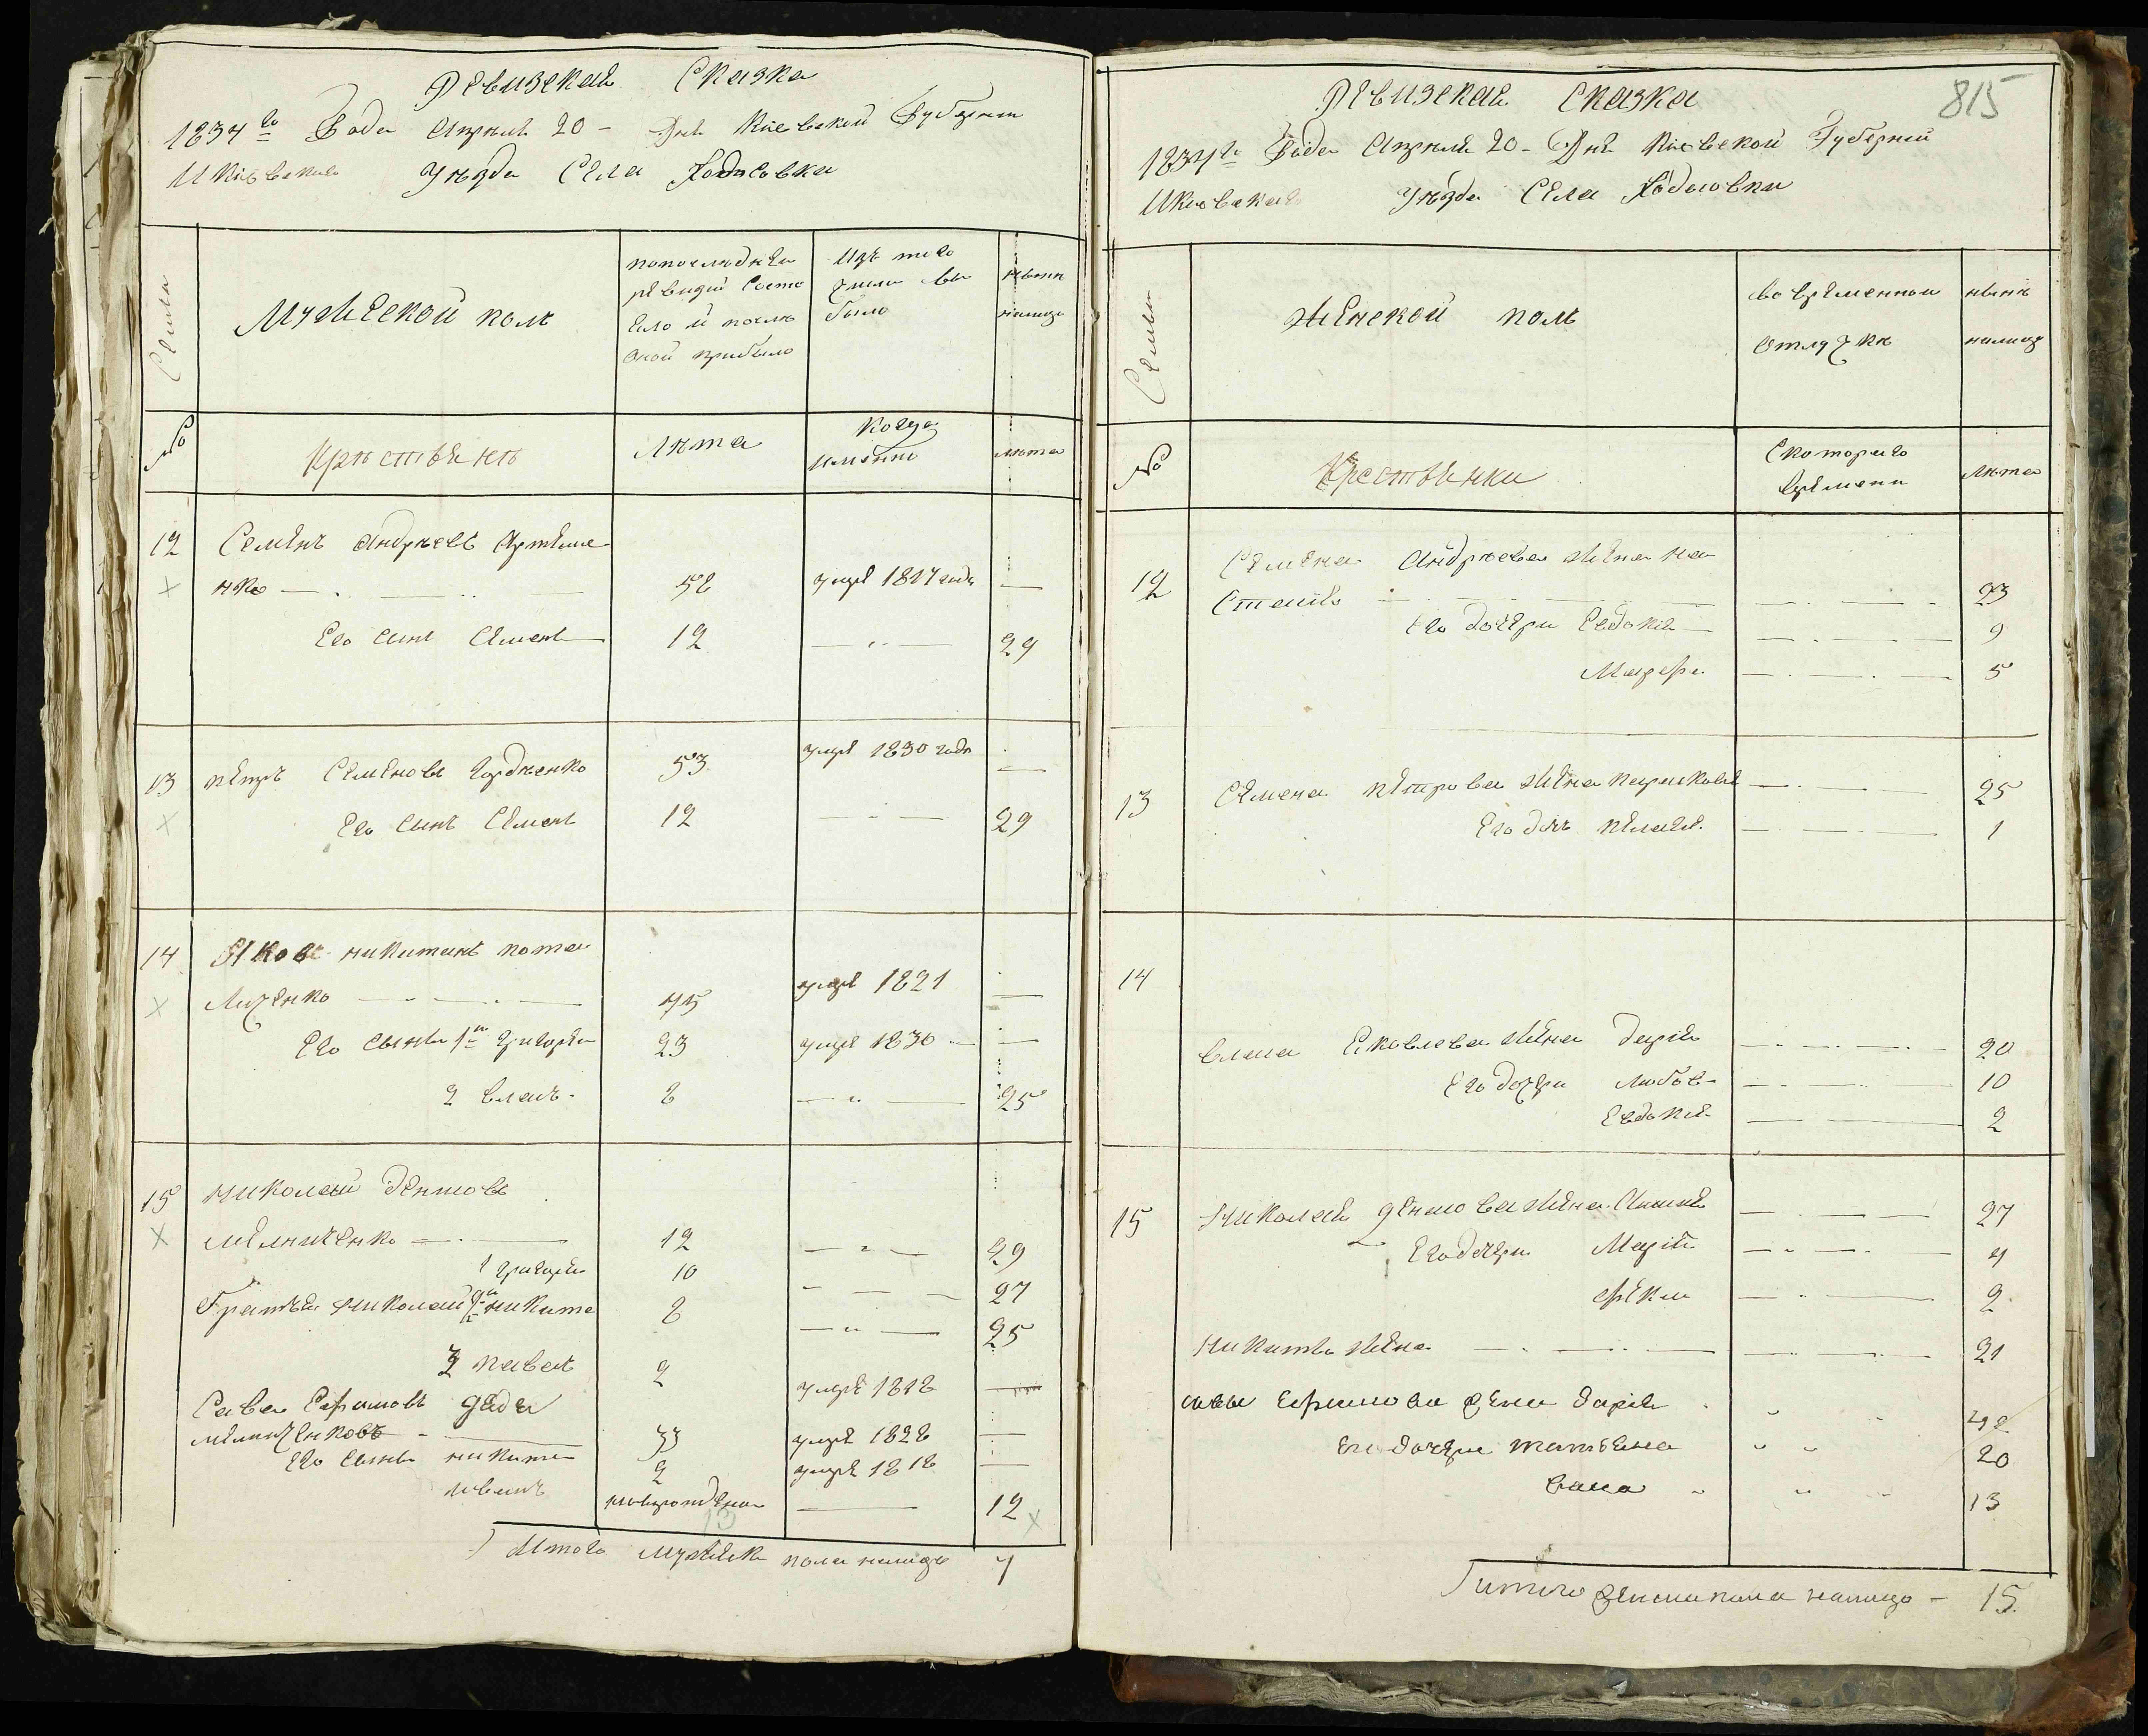 Ревизская Сказка
1834го Года Апреля 20 - Дня Киевской Губернии
И Киевскаго Уезда Села Ходосовки
Семьи
Мужеской полъ
попоследней
ревизии состо
яло и после
оной прибыло
Изъ того
числа вы
было
ныне
налицо
№
Крестьяне
Лета
Когда
именно
лета
12 Семенъ Андреевъ Артеме
нко 52 умре 1817 года
Его сынъ Семенъ 12 29
13 петръ Семеновъ Гордиенко 53 умре 1830 года
Его сынъ Семенъ 12 29
14 Яковъ никитинъ пота
личенко 75 умре 1821
Его сыновья 1й григорей 23 умре 1830
2 власъ 8 25
15 николай
мельниченко 12 29
1 григорей 10 27
братья николая 2й никита 8 25
3 павелъ 2 умре 1818
Сава Ефимовъ дядя
мельниченковъ 33 умре 1828
Его сыновья никита 2 умре 1818
новорожденъ 12
13
Итого мужеска пола налицо 7
815
Ревизская Сказка
1834го Года Апреля 20 - Дня Киевской Губернии
И Киевскаго Уезда Села Ходосовки
Семьи
Женской полъ
во временной
отлучке
ныне
налицо
№
Крестьянки
С котораго
времени
Лета
12 Семена Андреева жена на
стасия 23
Его дочери Евдокия 9
Марфа 5
13 Семена петрова жена 25
Его дочь пелагея 1
14
власа Яковлева жена Дария 20
Его дочери любовь 10
Евдокия 2
15 Николая жена 27
Его дочери Мария 4
фекла 2
Никиты жена 21
савы Ефимова жена дария 42
Его дочери татьяна 20
13
итого женска пола налицо - 15